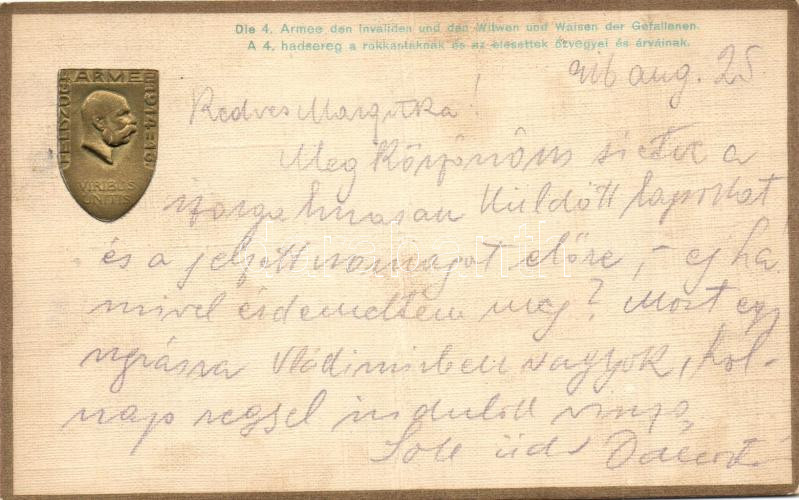 Die 4. Armee den Invaliden und den Witwen und Waisen der Gefallenen.
A 4. hadsereg a rokkantaknak és az elesettek özvegyei és árváinak.
ARMEE
FELDZUG
1914-16
VIRIBUS
UNITIS
916 aug. 25.
Kedves Margitka!
Megköszönöm sietve a
szorgalmasan küldött lapokat
és a jelzett csomagot előre, - ej ha
mivel érdemeltem meg? Most egy
ugrásra Vladimirben vagyok, hol-
nap reggel indulok vissza
Sok üdv